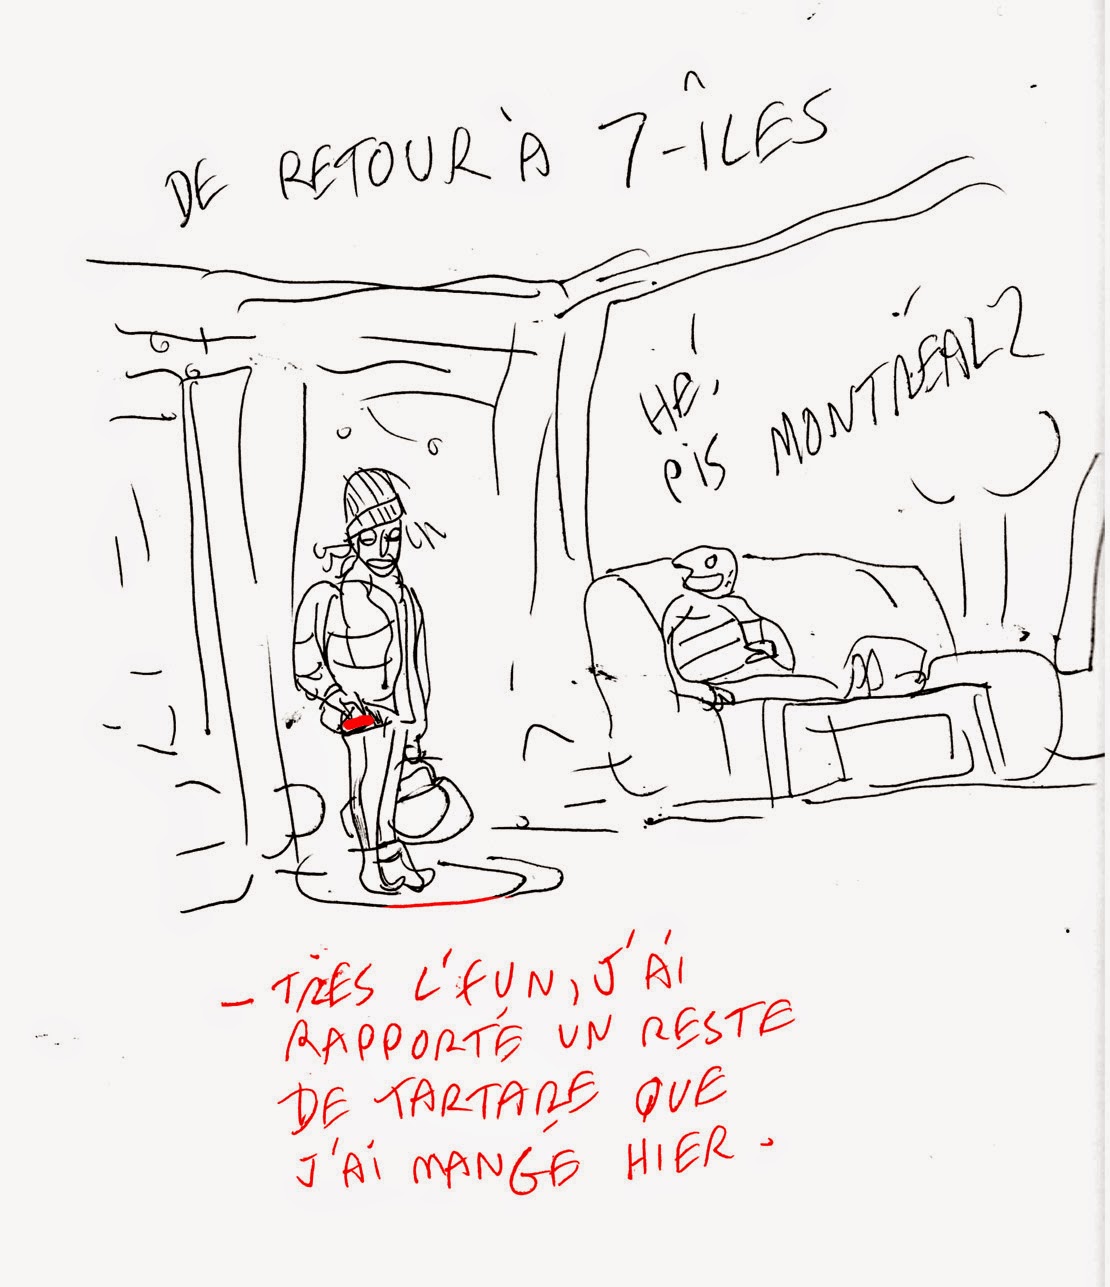 DE RETOUR À 7-ÎLES
HÉ,
PIS MONTRÉAL?
- TRÈS L'FUN, J'AI
RAPPORTÉ UN RESTE
DE TARTARE QUE
J'AI MANGÉ HIER.